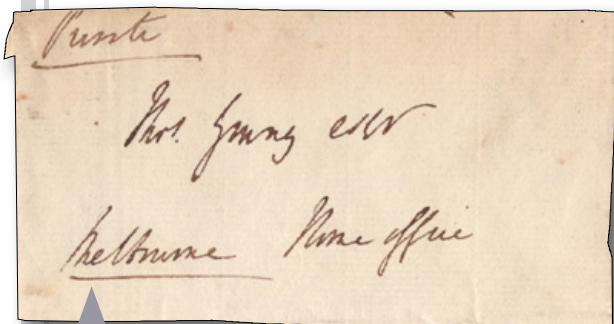 Private
Thos. Young esqr
Melbourne Home office